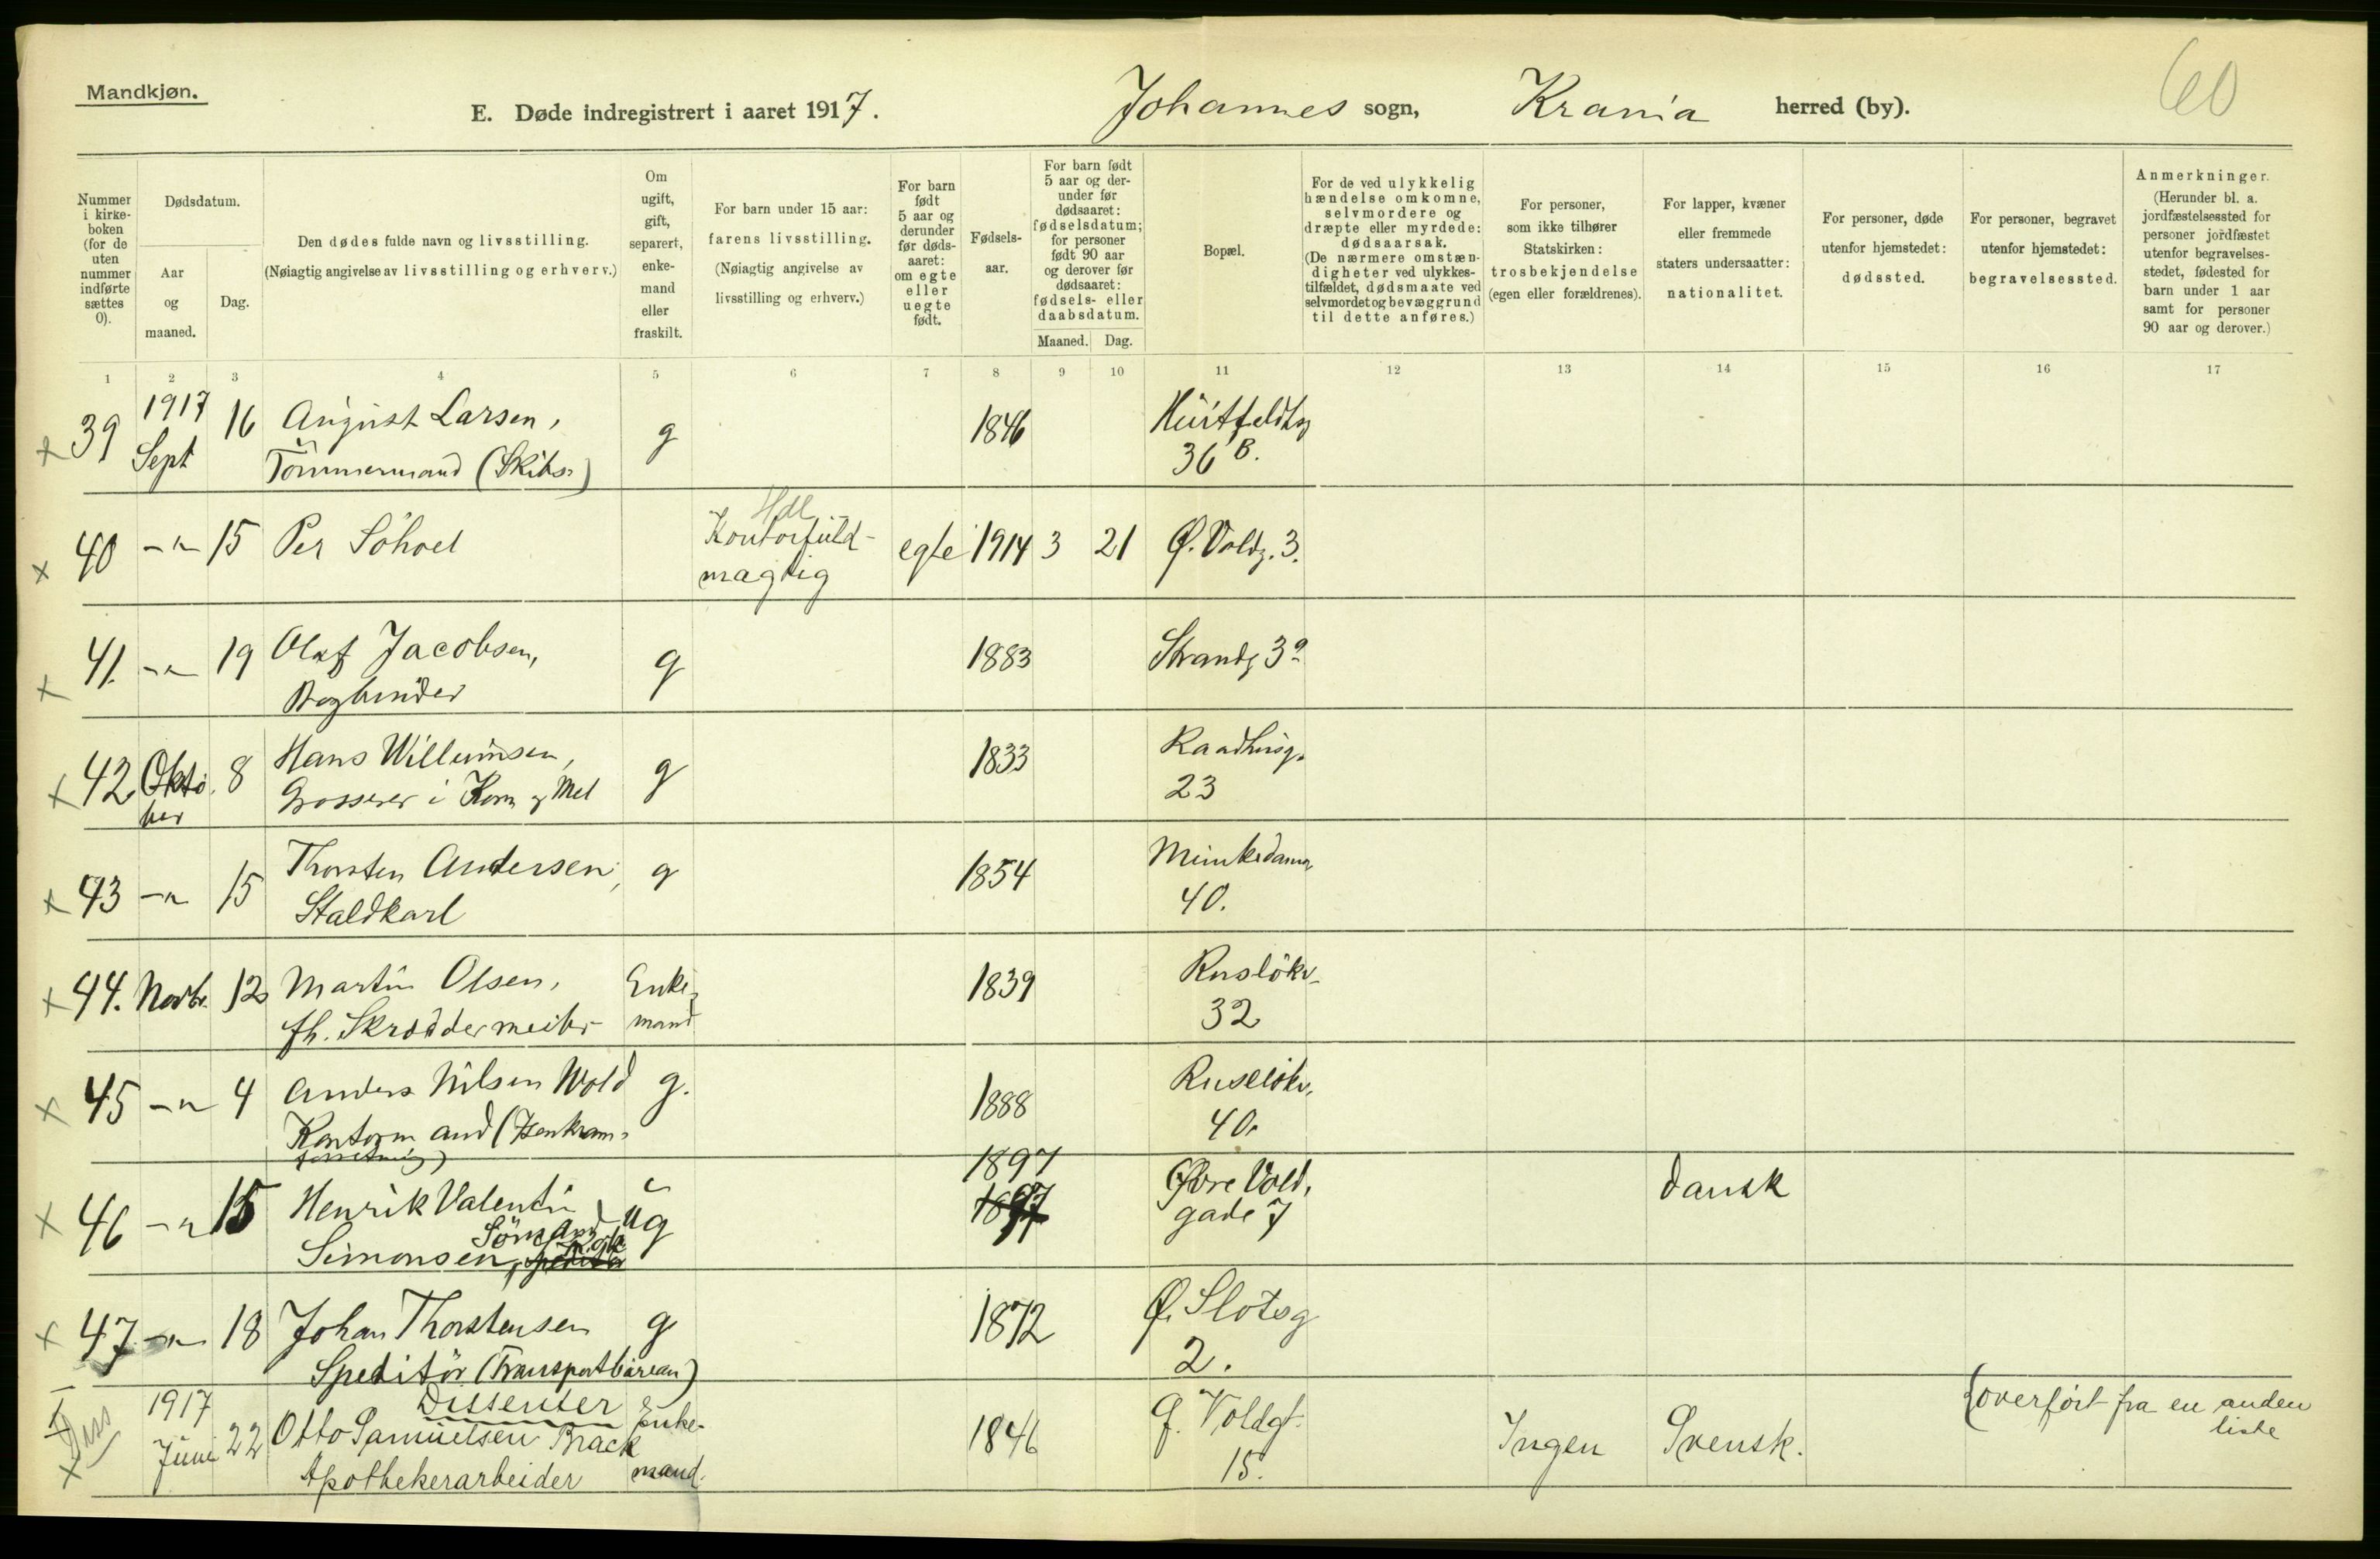 Mandkjøn.
E. Døde indregistrert i aaret 1917. Johannes sogn, Krania herred (by).
60
Nummer i kirke-boken (for de uten nummer indførte sættes 0).
Dødsdatum.
Aar og maaned.
Dag.
Den dødes fulde navn og livsstilling.
(Nøiagtig angivelse av livsstilling og erhverv.)
Om ugift, gift, separert, enke-mand eller fraskilt.
For barn under 15 aar:
farens livsstilling.
(Nøiagtig angivelse av livsstilling og erhverv.)
For barn født 5 aar og derunder før døds-aaret: om egte eller uegte født.
Fødsels-aar.
For barn født 5 aar og der-under før dødsaaret: fødselsdatum; for personer født 90 aar og derover før dødsaaret: fødsels- eller daabsdatum.
Maaned. Dag.
Bopæl.
For de ved ulykkelig hændelse omkomne, selvmordere og dræpte eller myrdede: dødsaarsak.
(De nærmere omstæn-digheter ved ulykkes-tilfældet, dødsmaate ved selvmordet og bevæggrund til dette anføres.)
For personer, som ikke tilhører Statskirken: trosbekjendelse (egen eller forældrenes).
For lapper, kvæner eller fremmede staters undersaatter: nationalitet.
For personer, døde utenfor hjemstedet: dødssted.
For personer, begravet utenfor hjemstedet: begravelsessted.
Anmerkninger.
(Herunder bl. a. jordfæstelsessted for personer jordfæstet utenfor begravelses-stedet, fødested for barn under 1 aar samt for personer 90 aar og derover.)
1 2 3 4 5 6 7 8 9 10 11 12 13 14 15 16 17
x 39 1917 Sept 16 August Larsen, g 1846 Huitfeldtsg
Tömmermand (Skibs.) 36 B.
Hdl
x 40 -"- 15 Per Söhoel Kontorfuld- egte 1914 3 21 Ø. Voldg. 3.
magtig
x 41. -"- 19 Olaf Jacobsen, g 1883 Strandg 3
Bogbinder
x 42 Okto. 8 Hans Willumsen, g 1833 Raadhusg.
ber Grosserer i Korn og Mel 23
x 43 -"- 15 Thorsten Andersen, g 1854 Munkedamsv
Staldkarl 40.
x 44. Novbr. 12 Martin Olsen, Enke- 1839 Ruslökv.
fh. Skræddermester mand 32
x 45 -"- 4 Anders Nilsen Wold g. 1888 Ruselökv.
Kontormand (Isenkram- 40.
forretning)
1897
x 46 -"- 15 Henrik Valentin ug 1897 Øvre Vold. dansk
Sömand gade 7
Simonsen,
x 47 -"- 18 Johan Thorstensen g 1872 Ø. Slotsg
Speditör (Transportbureau) 2.
I Diss Dissenter
x 1917 Juni 22 Otto Samuelsen Brack Enke- 1846 Ø. Voldgt. Ingen Svensk. (overfört fra en anden
Apothekerarbeider mand. 15. liste